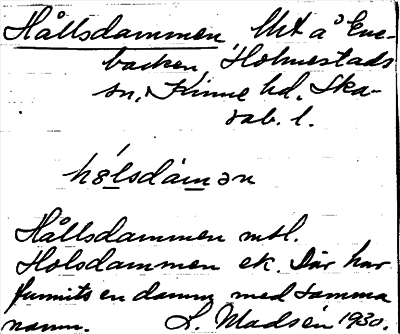 Hållsdammen Ux å Ene-
backen, Holmestads
sn, Kinne hd, Ska-
rab. l.
hålsdàmən
Hållsdammen mtl.
Holsdammen ek. Där har
funnits en damm med samma
namn. L. Madsén 1930.